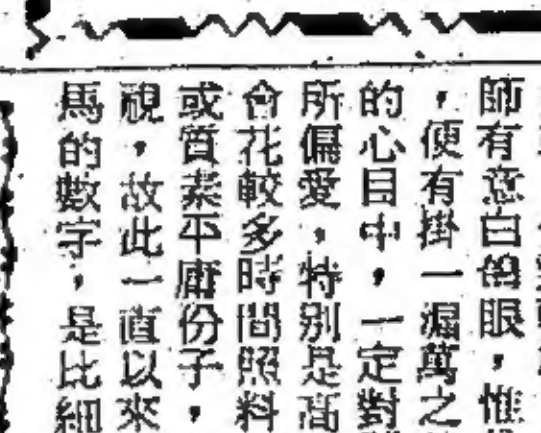 師有意白鴿眼，惟
，便有掛一漏萬之
的心目中，一定對
所偏愛，特別是高
會花較多時間照料
或質素平庸份子，
視，故此一直以來
馬的數字，是比細